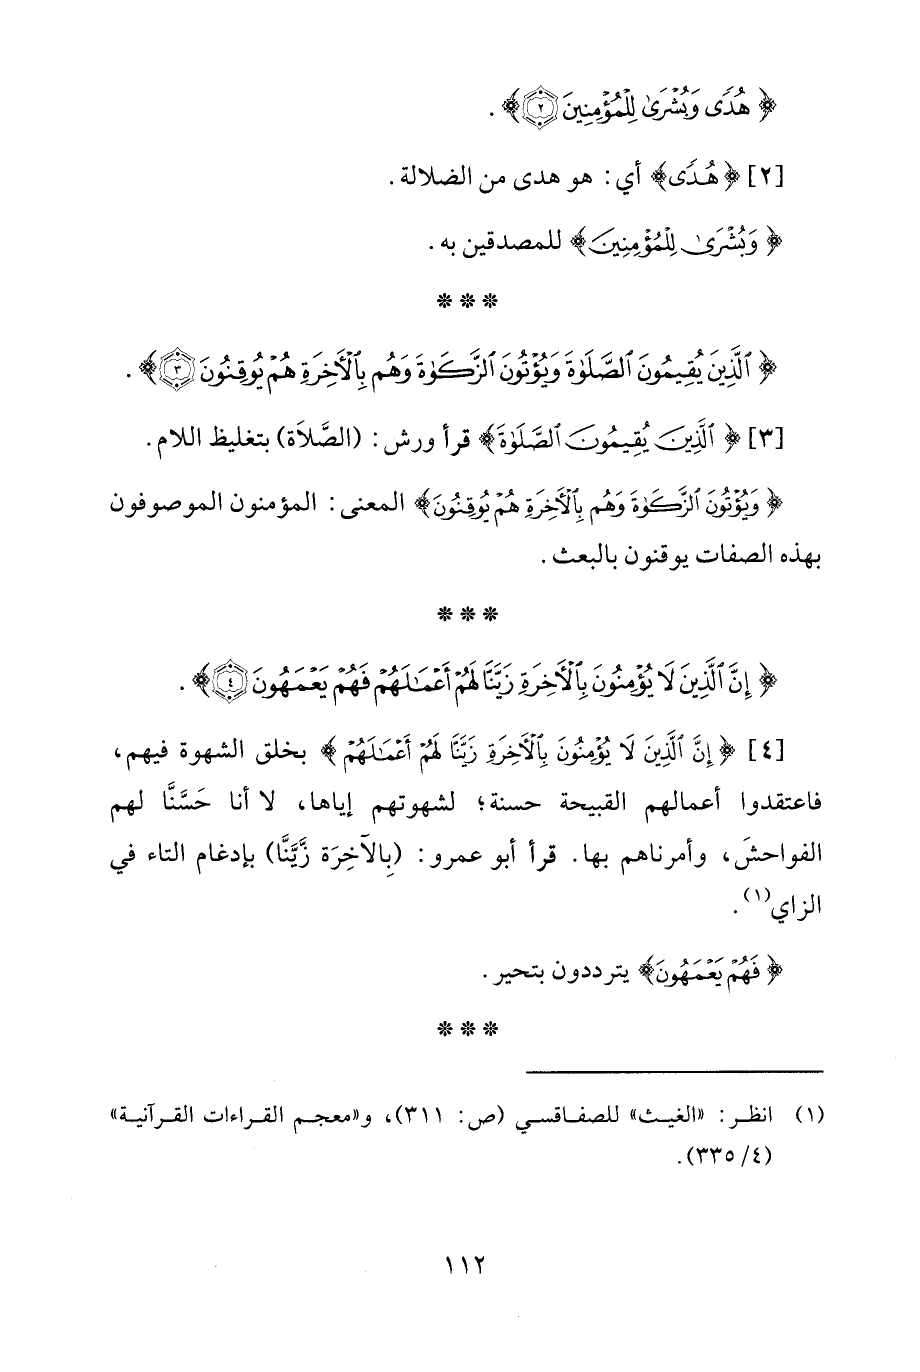 ﴿ هُدًى وَبُشْرَىٰ لِلْمُؤْمِنِينَ ٢ ﴾ .
[٢] ﴿ هُدًى ﴾ أي : هو هدى من الضلالة .
﴿ وَبُشْرَىٰ لِلْمُؤْمِنِينَ ﴾ للمصدقين به .
* * *
﴿ ٱلَّذِينَ يُقِيمُونَ ٱلصَّلَوٰةَ وَيُؤْتُونَ ٱلزَّكَوٰةَ وَهُم بِٱلْأَخِرَةِ هُمْ يُوقِنُونَ ٣ ﴾ .
[٣] ﴿ ٱلَّذِينَ يُقِيمُونَ ٱلصَّلَوٰةَ ﴾ قرأ ورش : (الصَّلاَة) بتغليظ اللام .
﴿ وَيُؤْتُونَ ٱلزَّكَوٰةَ وَهُم بِٱلْأَخِرَةِ هُمْ يُوقِنُونَ ﴾ المعنى : المؤمنون الموصوفون
بهذه الصفات يوقنون بالبعث .
* * *
﴿ إِنَّ ٱلَّذِينَ لَا يُؤْمِنُونَ بِٱلْأَخِرَةِ زَيَّنَّا لَهُمْ أَعْمَٰلَهُمْ فَهُمْ يَعْمَهُونَ ٤ ﴾ .
[٤] ﴿ إِنَّ ٱلَّذِينَ لَا يُؤْمِنُونَ بِٱلْأَخِرَةِ زَيَّنَّا لَهُمْ أَعْمَٰلَهُمْ ﴾ بخلق الشهوة فيهم ،
فاعتقدوا أعمالهم القبيحة حسنة ؛ لشهوتهم إياها ، لا أنا حَسَّنَّا لهم
الفواحشَ ، وأمرناهم بها . قرأ أبو عمرو : (بِالآخِرَة زَّيَّنَّا) بإدغام التاء في
الزاي(١) .
﴿ فَهُمْ يَعْمَهُونَ ﴾ يترددون بتحير .
* * *
(١) انظر : «الغيث» للصفاقسي (ص : ٣١١) ، و«معجم القراءات القرآنية»
(٤/ ٣٣٥) .
١١٢